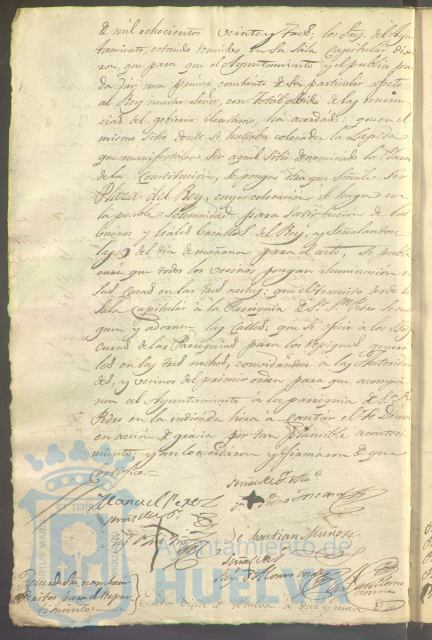 de mil ochocientos veinte y tres; los Sres. del Ayun
tamiento, estando reunidos en su Sala Capitular dixe
ron, que para que el Ayuntamiento y el publico pue
da dar una prueva constante de su particular afecto
al Rey nuestro Señor, con total olvido de las ocurren
cias del govierno han acordado: que en el
mismo sitio donde se hallaba colocada la Lapida
que manifestaba ser aquel sitio denominado la Plaza
de la Constitucion, se ponga otra que señale ser
Plaza del Rey, cuya colocacion se haga con
la posible solemnidad para satisfaccion de los
buenos y leales vasallos del Rey, y señalandose
las del dia de mañana para el acto, se publi
care que todos los vecinos pongan iluminacion en
sus casas en las tres noches: que el transito desde la
Sala Capitular à la Parroquia de Sr. Sn. Pedro se cuel
guen y adornen las calles: que se oficie à los Sres.
curas de las Parroquias para los repiques genera
les en las tres noches, convidandose à las Autorida
des, y vecinos del primer orden para que acompa
ñen al Ayuntamiento à la parroquia de Sr. Sn.
Pedro en la indicada hora a cantar el Te Deum
en accion de gracias por tan plausible aconteci
miento; y asi lo acordaron y firmaron de que
Certifico.
Manuel Perez
señal de
señal de
Sebastian Muñoz
señal de
Ayuntamiento de
HUELVA
En la Villa de Huelva a diez y nueve de